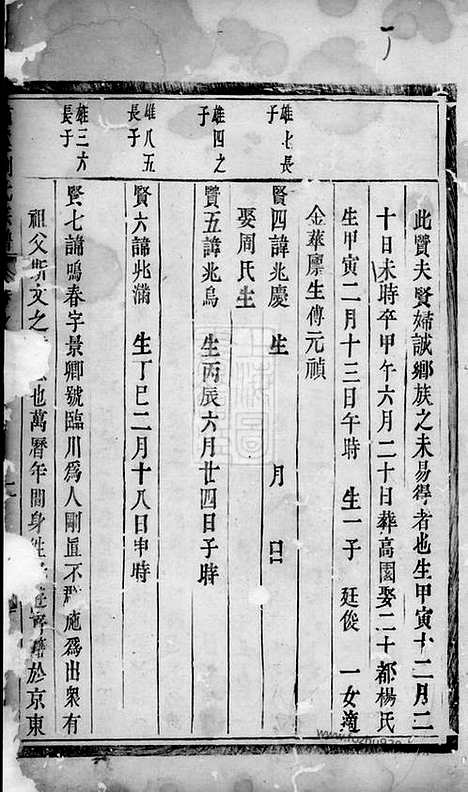 此賢夫賢婦誠鄉族之未易得者也生甲寅十二月二
十日未時卒甲午六月二十日葬高園娶二十都楊氏
生甲寅二月十三日午時 生一子 廷俊 一女適
金華廪生傅元禎
雄七長子
賢四諱兆慶 生 月 日
娶周氏生
雄四之子
賢五諱兆烏 生丙辰六月廿四日子時
雄八五長子
賢六諱兆滿 生丁巳二月十八日申時
雄三六長子
賢七諱鳴春字景卿號臨川為人剛直不群施為出衆有
祖父斯文之 也萬曆年間身 於京東